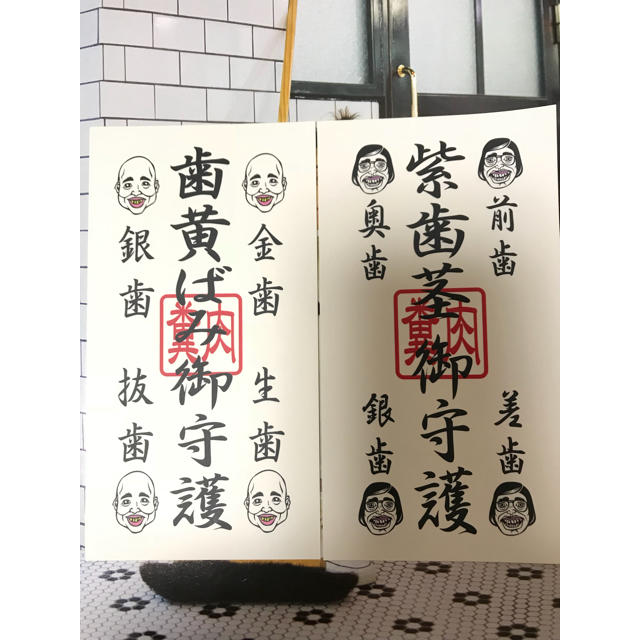 金歯
生歯
歯黄ばみ御守護
糞
銀歯
抜歯
前歯
差歯
紫歯茎御守護
糞
奥歯
銀歯